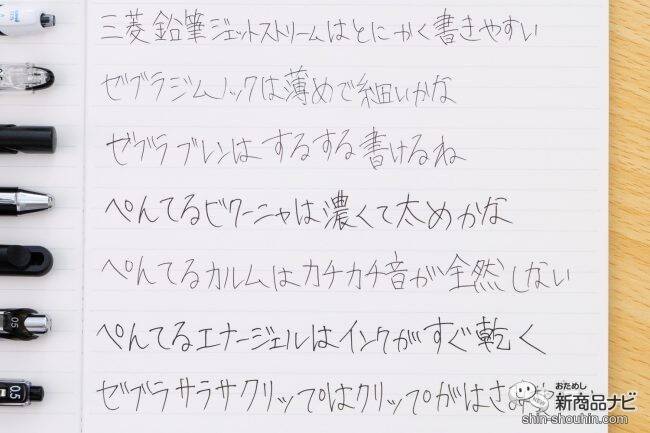 三菱鉛筆ジェットストリームはとにかく書きやすい
ゼブラジムノックは薄めで細いかな
ゼブラブレンはするする書けるね
ぺんてるビクーニャは濃くて太めかな
ぺんてるカルムはカチカチ音が全然しない
ぺんてるエナージェルはインクがすぐ乾く
ゼブラサラサクリップはクリップがはさ
0.5
0.5
おためし
新商品ナビ
shin-shouhin.com